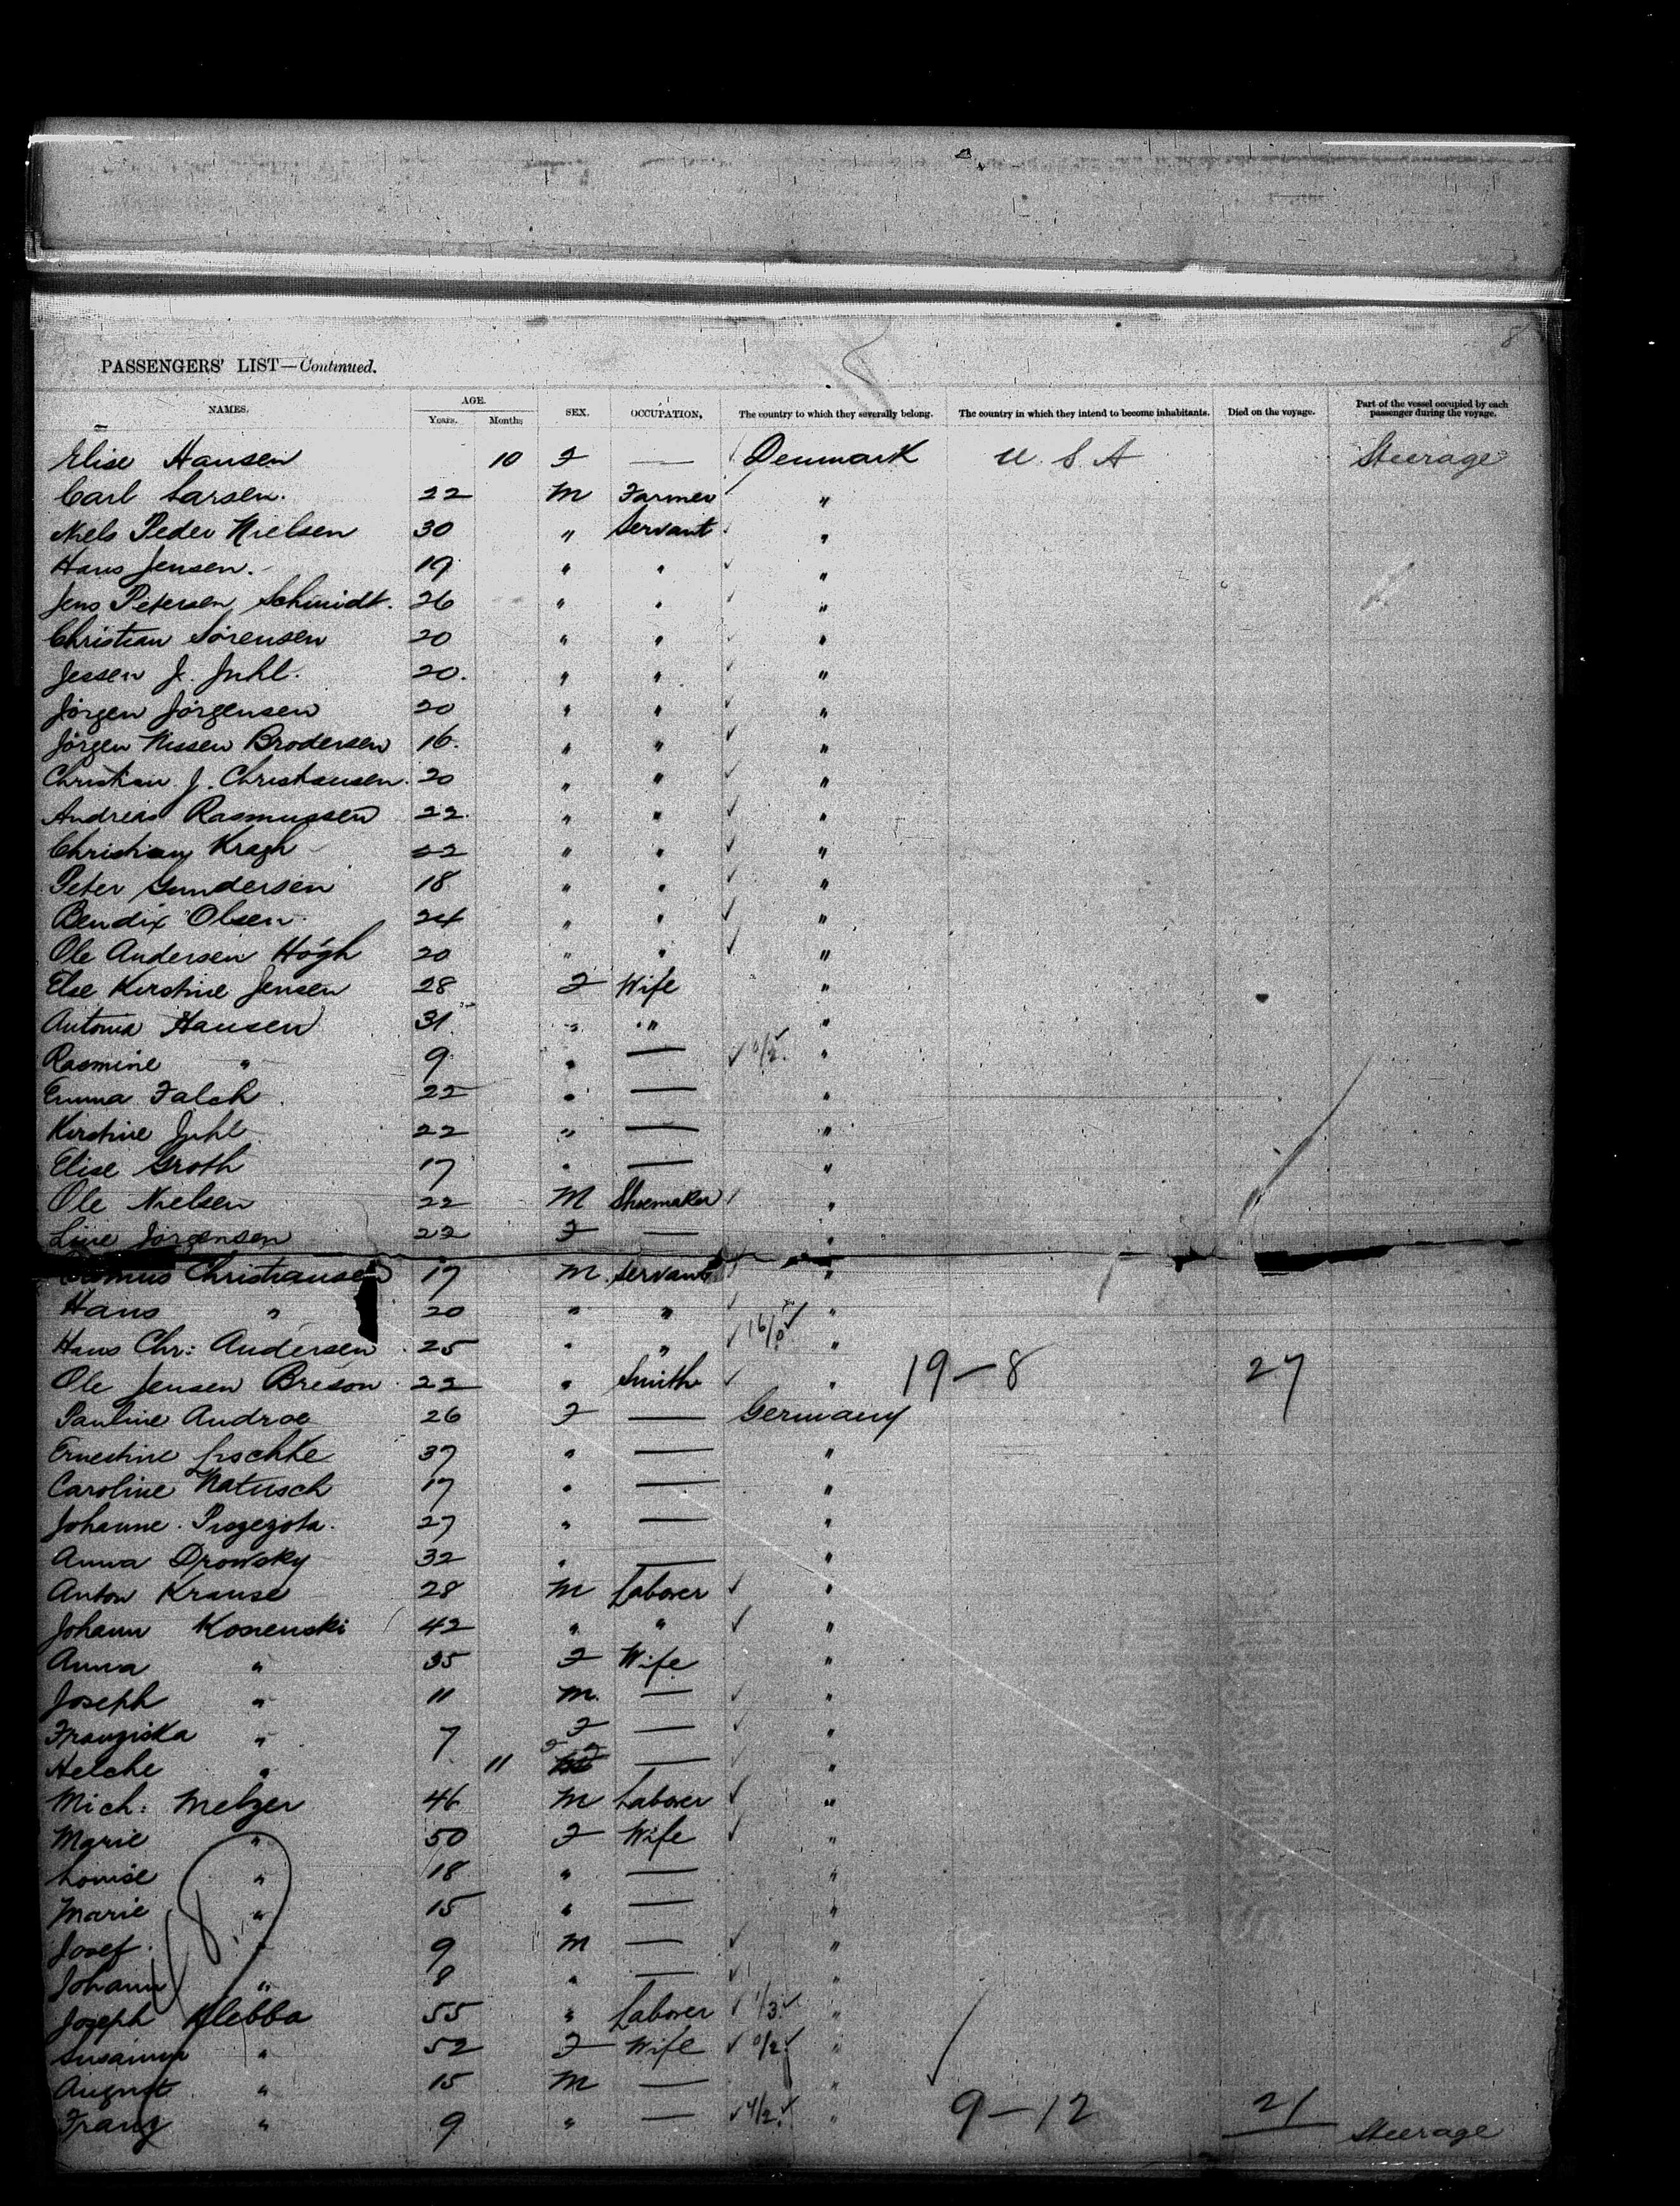 8
PASSENGERS' LIST—Continued.
NAMES. AGE. Years. Months SEX. OCCUPATION, The country to which they severally belong. The country in which they intend to become inhabitants. Died on the voyage. Part of the vessel occupied by each passenger during the voyage.
Elise Hansen 10 F — Denmark U. S. A Steerage
Carl Larsen. 22 M Farmer "
Niels Peder Nielsen 30 " Servant "
Hans Jensen. 19 " " "
Jens Petersen Schmidt. 26 " " "
Christian Sörensen 20 " " "
Jessen J. Juhl. 20. " " "
Jörgen Jörgensen 20 " " "
Jörgen Nissen Brodersen 16. " " "
Christian J. Christiansen. 20 " " "
Andreas Rasmussen 22. " " "
Christian Kragh 22 " " "
Peter Gundersen 18 " " "
Bendix Olsen 24 " " "
Ole Andersen Högh 20 " " "
Else Kirstine Jensen 28 F Wife "
Antonia Hansen 31 " " "
Rasmine " 9 " — "
Emma Falck 22 " — "
Kirstine Juhl 22 " — "
Elise Groth 17 " — "
Ole Nielsen 22 M Shoemaker "
Line Jörgensen 22 F — "
Christiansen 17 M. Servant "
Hans " 20 " " "
Hans Chr: Andersen 25 " " 16/ "
Ole Jensen Breson 22 " Smith " 19—8 27
Pauline Andrae 26 F — Germany
Ernestine 37 " — "
Caroline Natusch 17 " — "
Johanne 27 " — "
Anna Drowsky 32 " — "
Anton Krause 28 M Laborer "
Johann 42 " " "
Anna " 35 F Wife "
Joseph " 11 M. — "
Franziska " 7 F — "
Helche " 11 F — "
Mich: Melzer 46 M Laborer "
Marie " 50 F Wife "
Louise " 18 " — "
Marie " 15 " — "
Josef " 9 M — "
Johann " 8 " — "
Joseph Klebba 55 " Laborer 1/3 "
Susanna " 52 F Wife 0/2 "
August " 15 M — "
Franz " 9 " — 4/2 " 9—12 21 Steerage